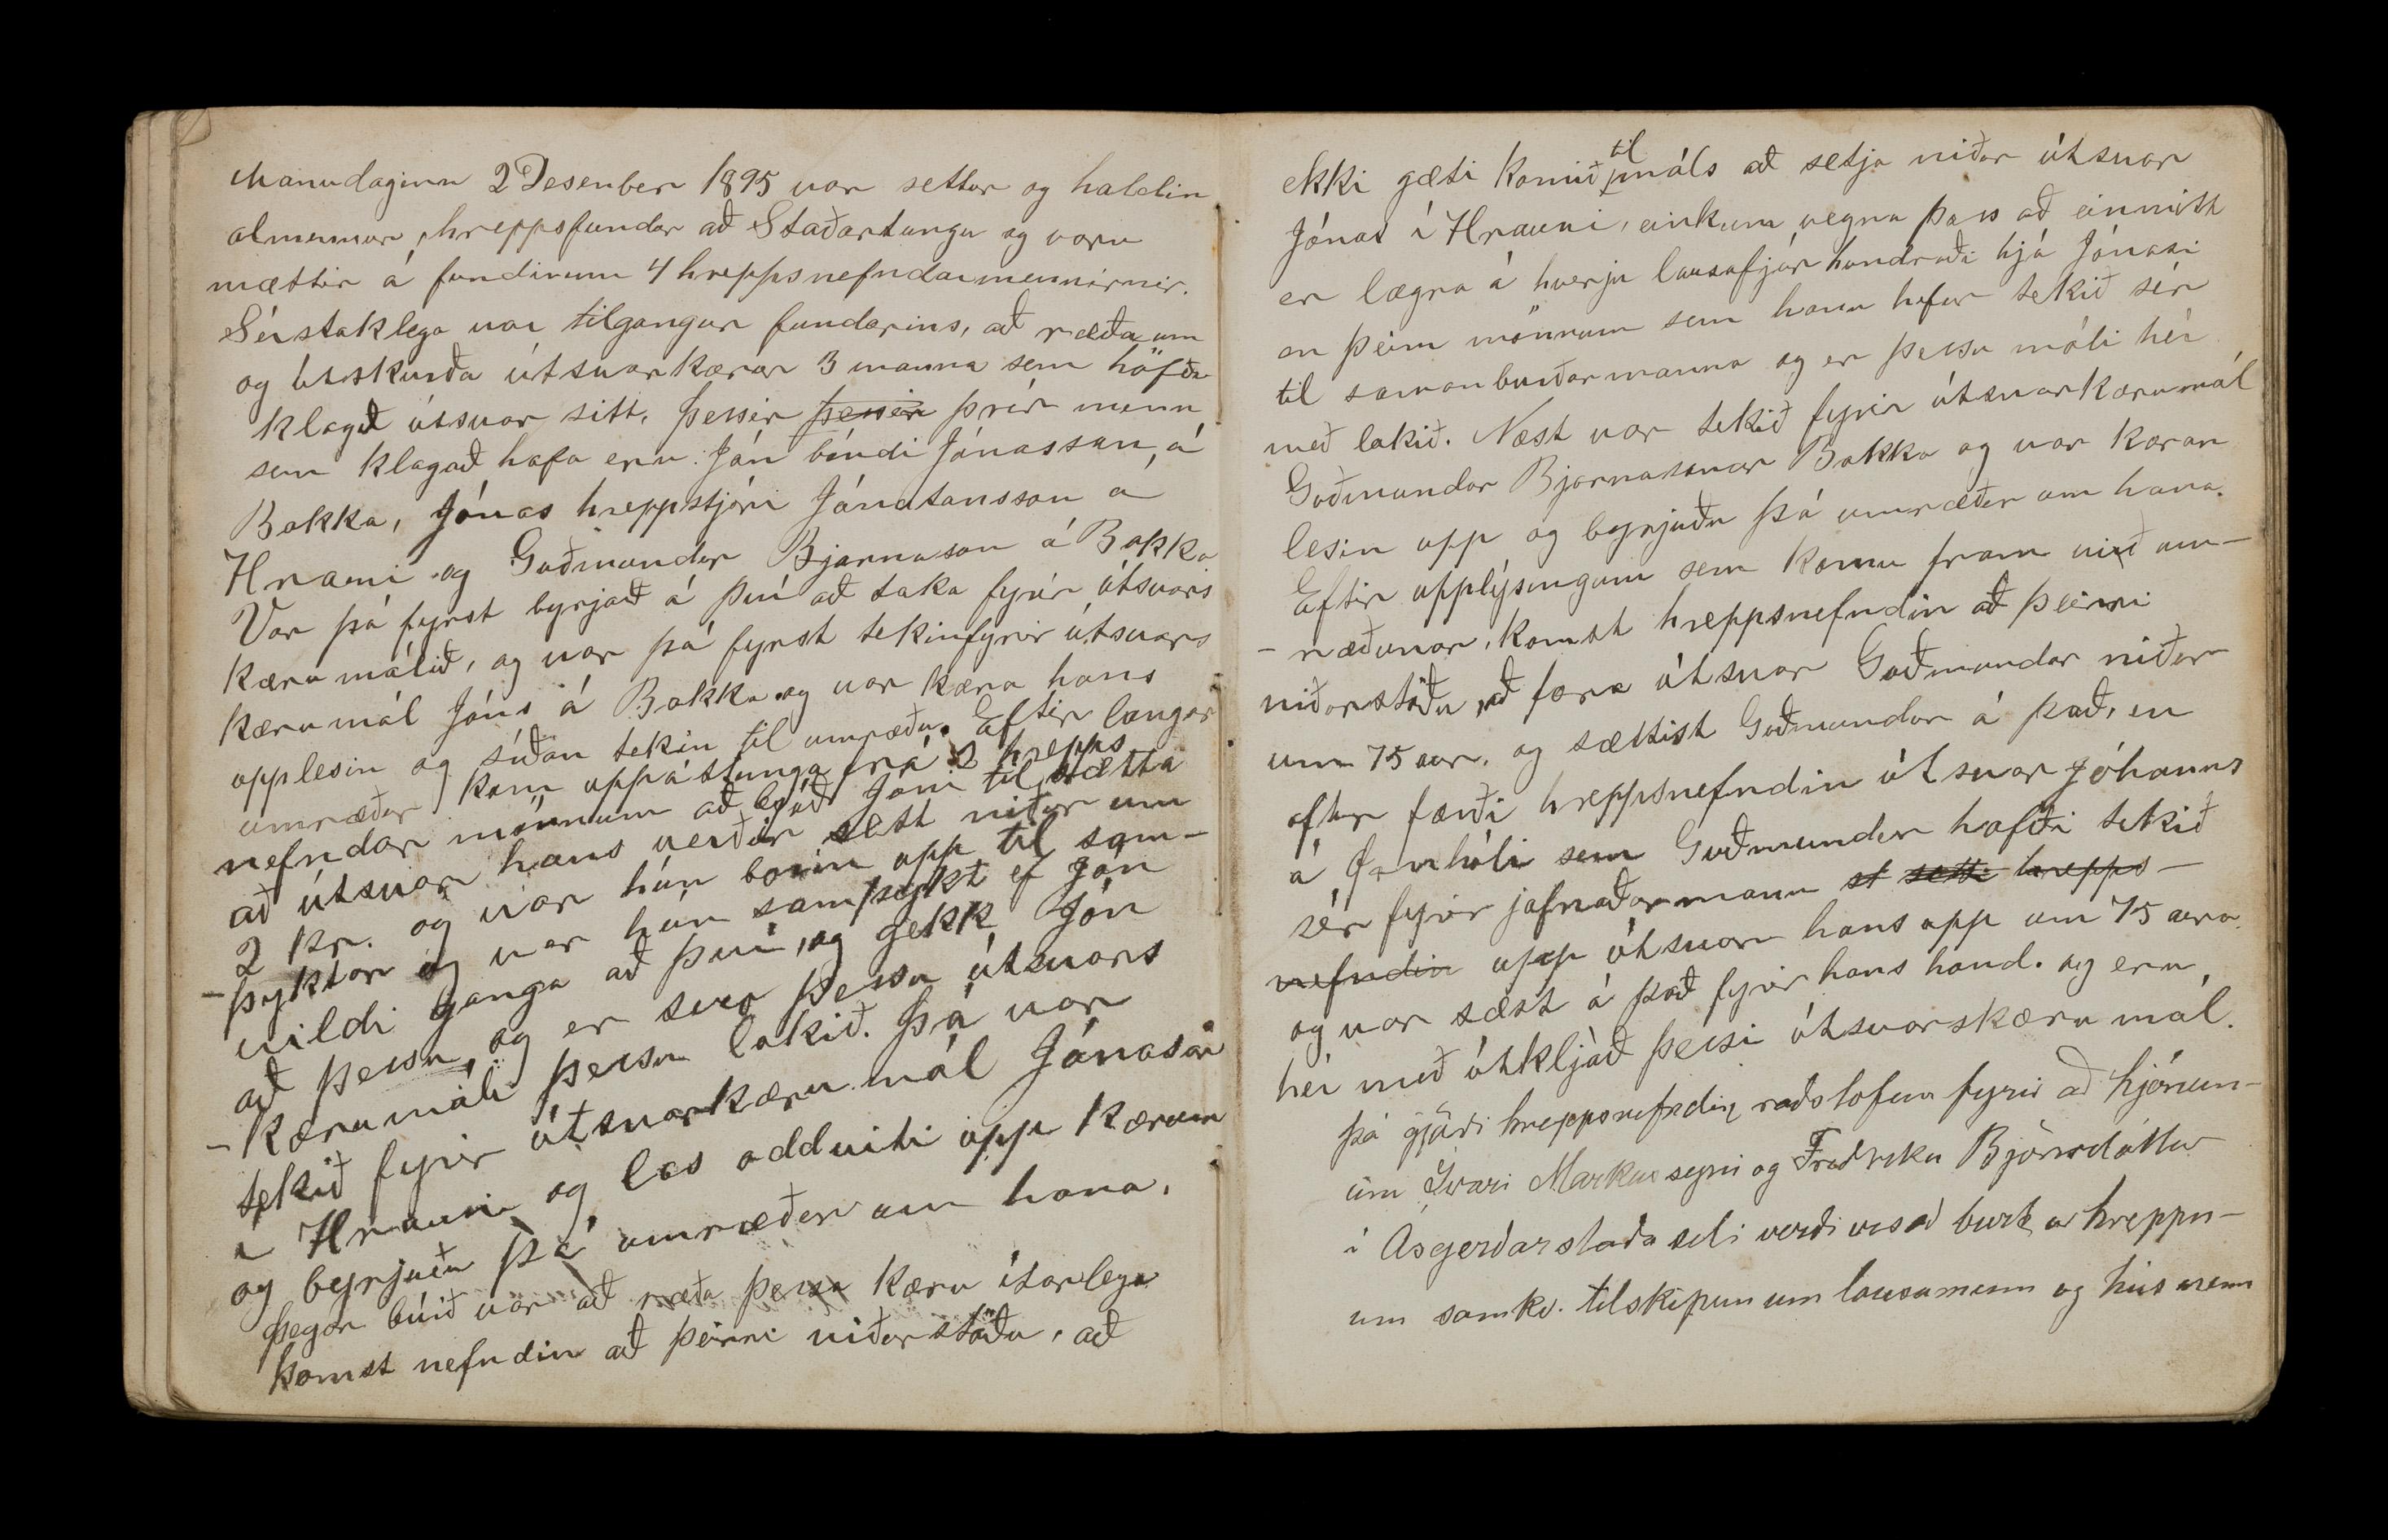 Manudaginn 2 Desember 1895 var settur og haldin
almennur hreppsfundur að Staðartungu og voru
mættir á fundinum 4 hreppsnefndarmennirnir.
Sérstaklega var tilgangur fundarins, að ræða um
og útskurða útsvarkærur 3 manna sem höfðu
klagað útsvar sitt. Þessir þessir þrír menn
sem klagað hafa eru: Jón bóndi Jónasson, á
Bakka, Jónas hreppstjóri Jónatansson á
Hrauni og Guðmundur Bjarnason á Bakka
Var þá fyrst byrjað á því að taka fyrir útsvars
kæru málið, og var þá fyrst tekin fyrir útsvars
kærumál Jóns á Bakka og var kæra hans
upplesin og síðan tekin til umræðu. Eftir langar
umræður kom uppástunga frá 2 hrepps
nefndar mönnum að bjóða Jóni til sætta
að útsvar hans verður sett niður um
2 kr. og var hún borin upp til sam-
-þyktar og var hún samþykt ef Jón
vildi ganga að því, og gekk Jón
að þessu, og er svo þessu útsvars
-kærumáli þessu lokið. Þá var
tekið fyrir útsvarkæru mál Jónasar
í Hrauni og las oddviti upp kæruna
og byrjuðu þá umræður um hana.
Þegar búið var að ræða þessa kæru ítarlega
komst nefndin að þeirri niðurstöðu, að
ekki gæti komið til máls að setja niður útsvar
Jónas í Hrauni, einkum vegna þess að einmitt
er lægra á hverju lausafjár hundraði hjá Jónasi
en þeim mönnum sem hann hefur tekið sér
til samanburðarmanna og er þessu máli hér
með lokið. Næst var tekið fyrir útsvarkærumál
Guðmundar Bjarnasonar Bakka og var kæran
lesin upp og byrjuðu þá umræður um hana.
Eftir upplýsingum sem komu fram við um-
-ræðurnar, komst hreppsnefndin að þeirri
niðurstöðu, að færa útsvar Guðmundar niður
um 75 aur. og sættist Guðmundur á það, en
aftur færði hreppsnefndin útsvar Jóhanns
á Ørnhóli sem Guðmundur hafði tekið
sér fyrir jafnaðarmann st setti hrepps-
nefndin upp útsvar hans upp um 75 aura.
og var sæst á það fyrir hans hand. og eru
hér með útkljáð þessi útsvarskæru mál.
Þá gjörði hreppsnefndin raðstofun fyrir að hjónun-
um Ivari Markussyni og Fredriku Björnsdóttur
í Asgerðarstaða seli verði vísað burt úr hreppn-
um samkv. tilskipun um lausamenn og húsmenn